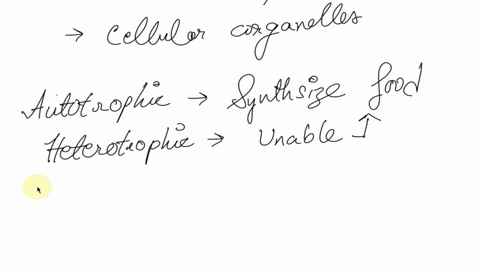 → Cellular organelles
Autotrophic → Synthsize food
Heterotrophic → Unable ↑